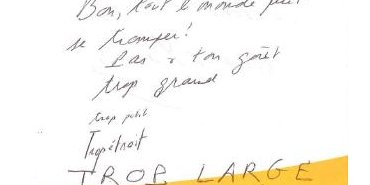 Bon, tout le monde peut
se tromper!
Pas à ton goût
trop grand
trop petit
Trop étroit
TROP LARGE